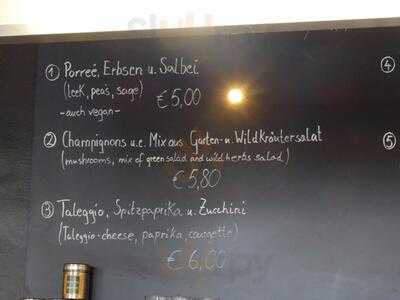 ① Porreé, Erbsen u. Salbei
(leek, peas, sage)
- auch vegan -
€5,00
② Champignons u.e. Mix aus Garten- u. Wildkräutersalat
(mushrooms, mix of green salad and wild herbs salad)
€5,80
③ Taleggio, Spitzpaprika u. Zucchini
(Taleggio-cheese, paprika, courgette)
€6,00
④
⑤